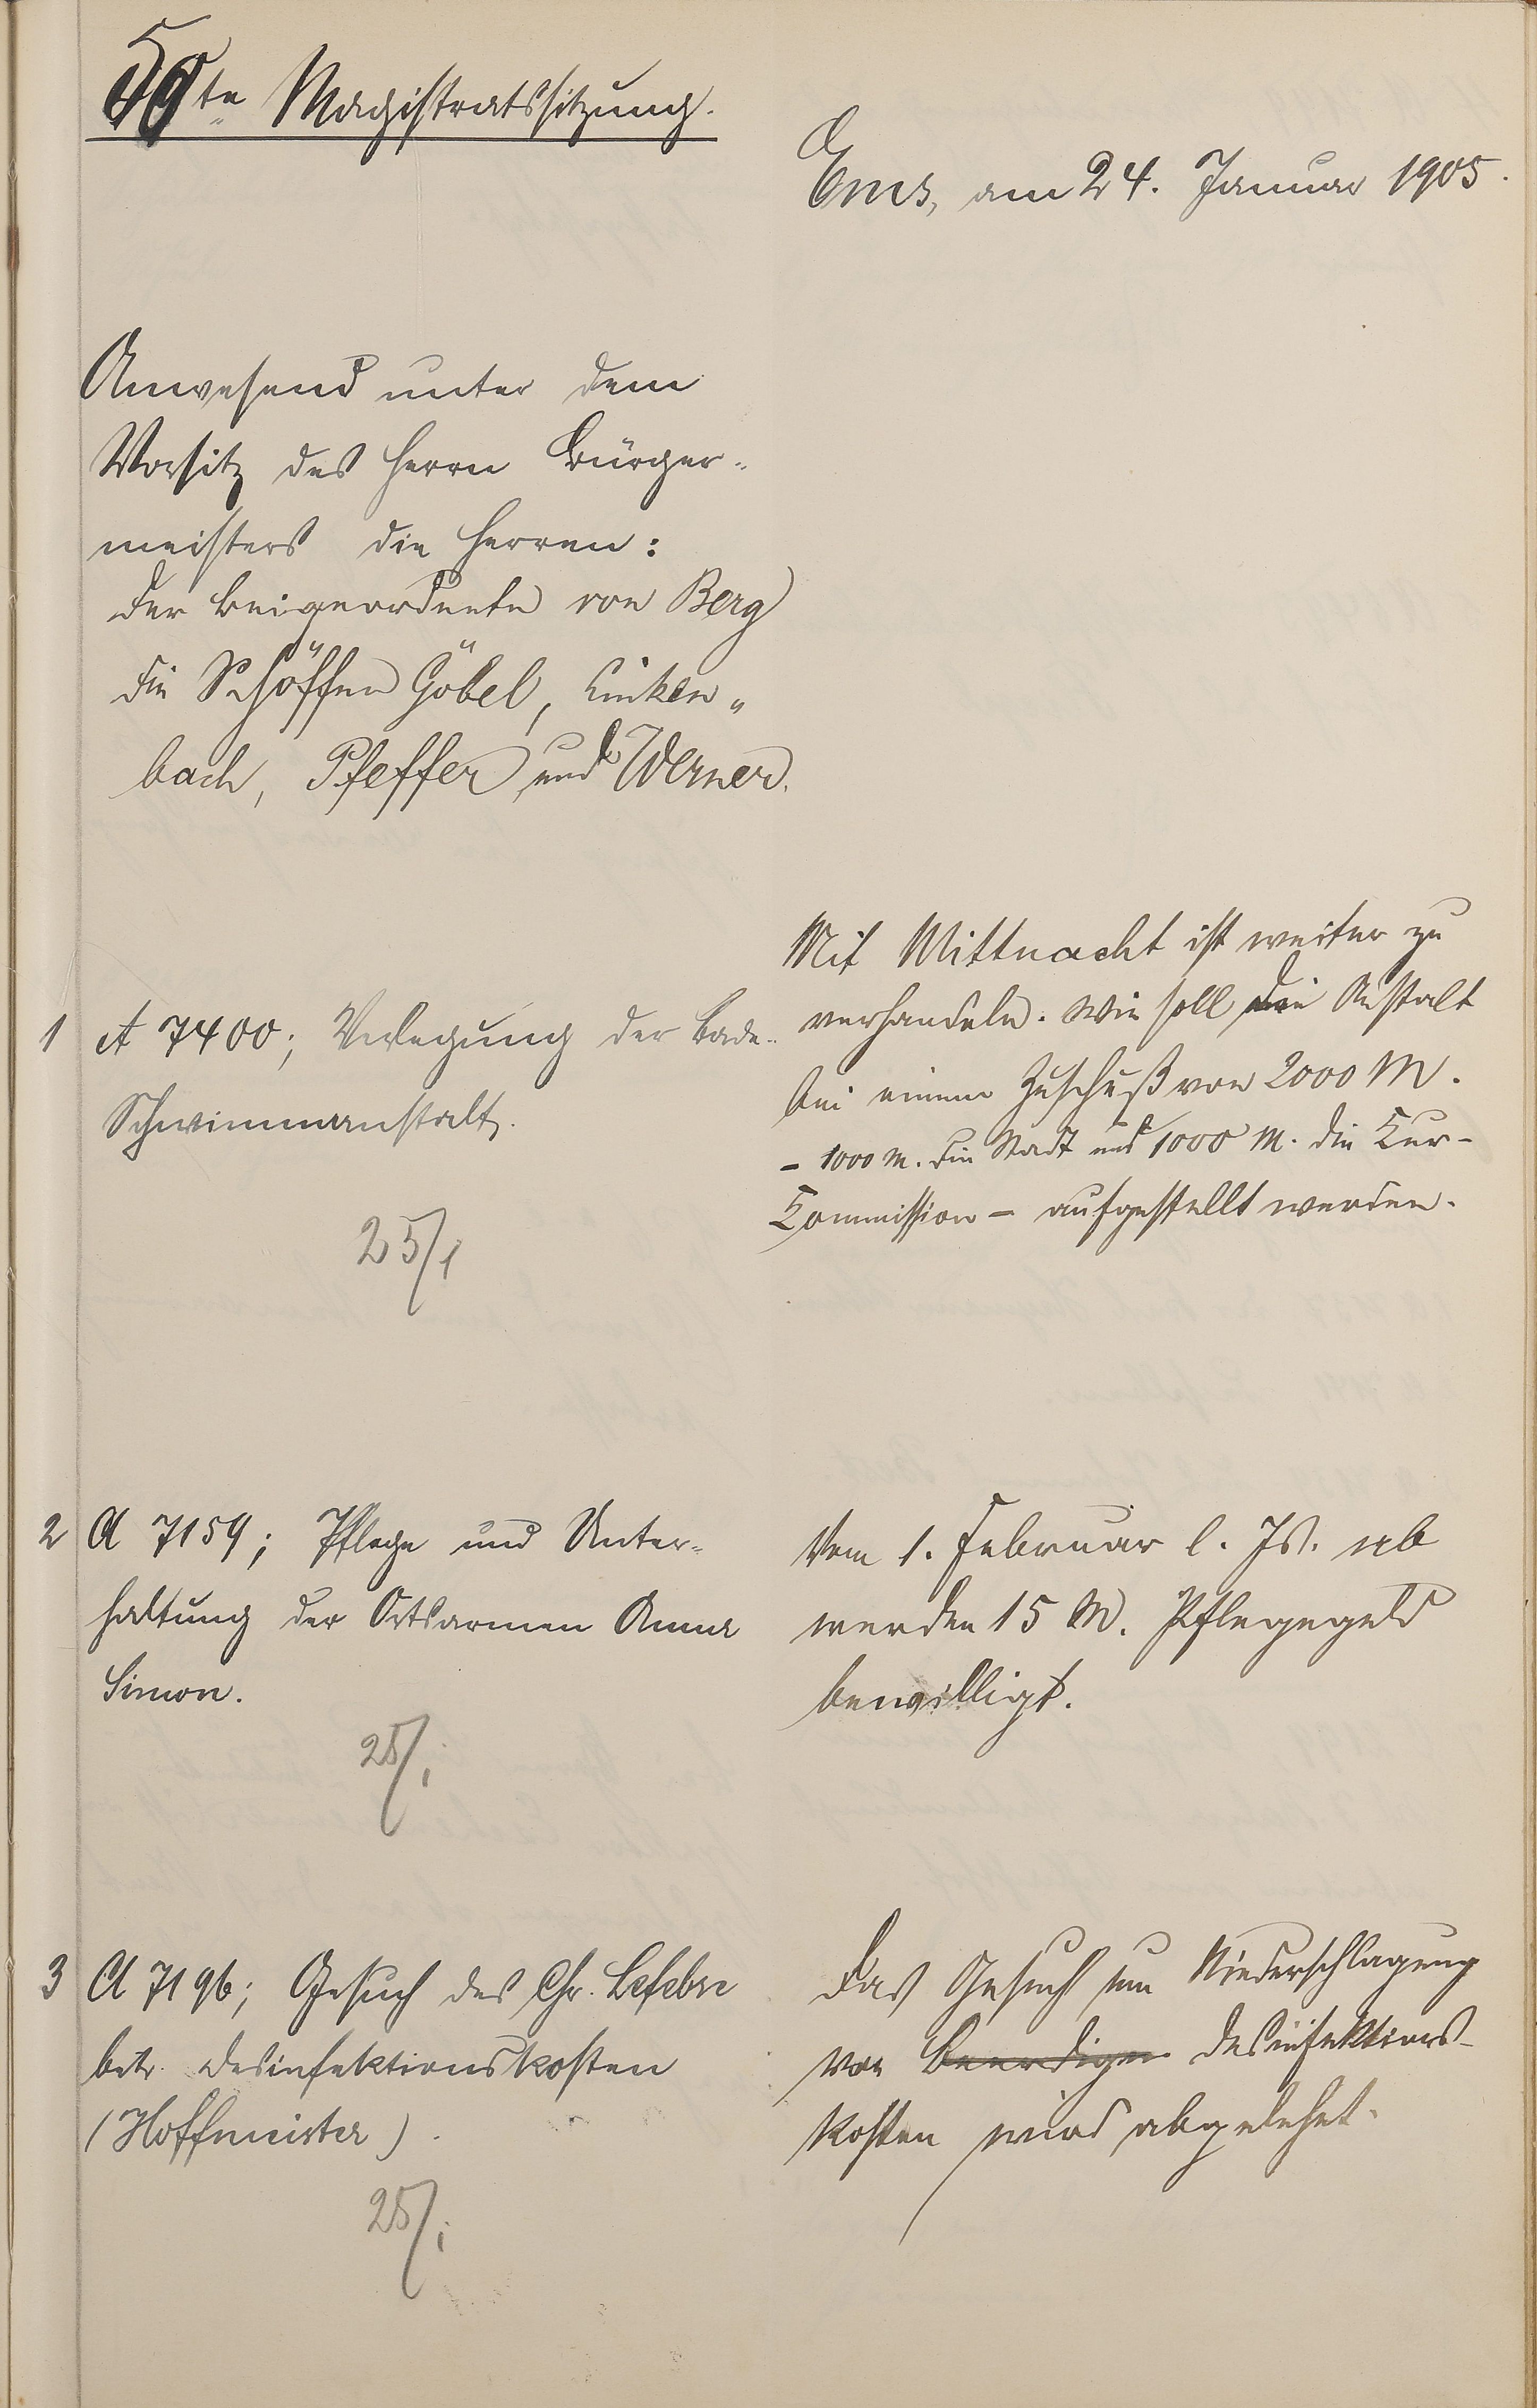 50te Magistratssitzung.
Ems, am 24. Januar 1905.
Anwesend unter dem
Vorsitz des Herrn Bürger-
meisters die Herren:
der Beigeordnete von Berg
die Schöffen Göbel, Linken-
bach, Pfeffer und Werner.
1 A 7400; Verlegung der Bade-
Schwimmanstalt.
25/1
Mit Mittnacht ist weiter zu
verhandeln. Wie soll die Anstalt
bei einem Zuschuß von 2000 M.
- 1000 M. die Stadt und 1000 M. die Kur-
Commission - aufgestellt werden.
2 A 7159; Pflege und Unter-
haltung der Ortsarmen Anna
Simon.
25/1
Vom 1. Februar l. Js. ab
werden 15 M. Pflegegeld
bewilligt.
3 A 7196; Gesuch des Chr. Lefebre
betr. Desinfektionskosten
(Hoffmeister).
25/1
Das Gesuch um Niederschlagung
von Beerdigen Desinfektions-
kosten wird abgelehnt.